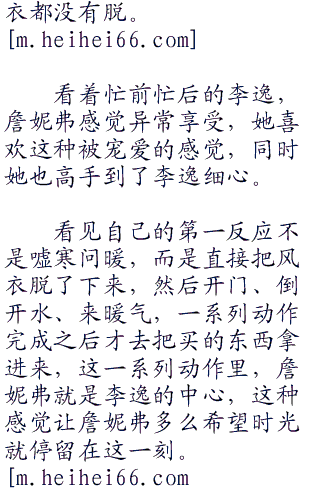 衣都没有脱。
[m.heihei66.com]
看着忙前忙后的李逸，
詹妮弗感觉异常享受，她喜
欢这种被宠爱的感觉，同时
她也高手到了李逸细心。
看见自己的第一反应不
是嘘寒问暖，而是直接把风
衣脱了下来，然后开门、倒
开水、来暖气，一系列动作
完成之后才去把买的东西拿
进来，这一系列动作里，詹
妮弗就是李逸的中心，这种
感觉让詹妮弗多么希望时光
就停留在这一刻。
[m.heihei66.com